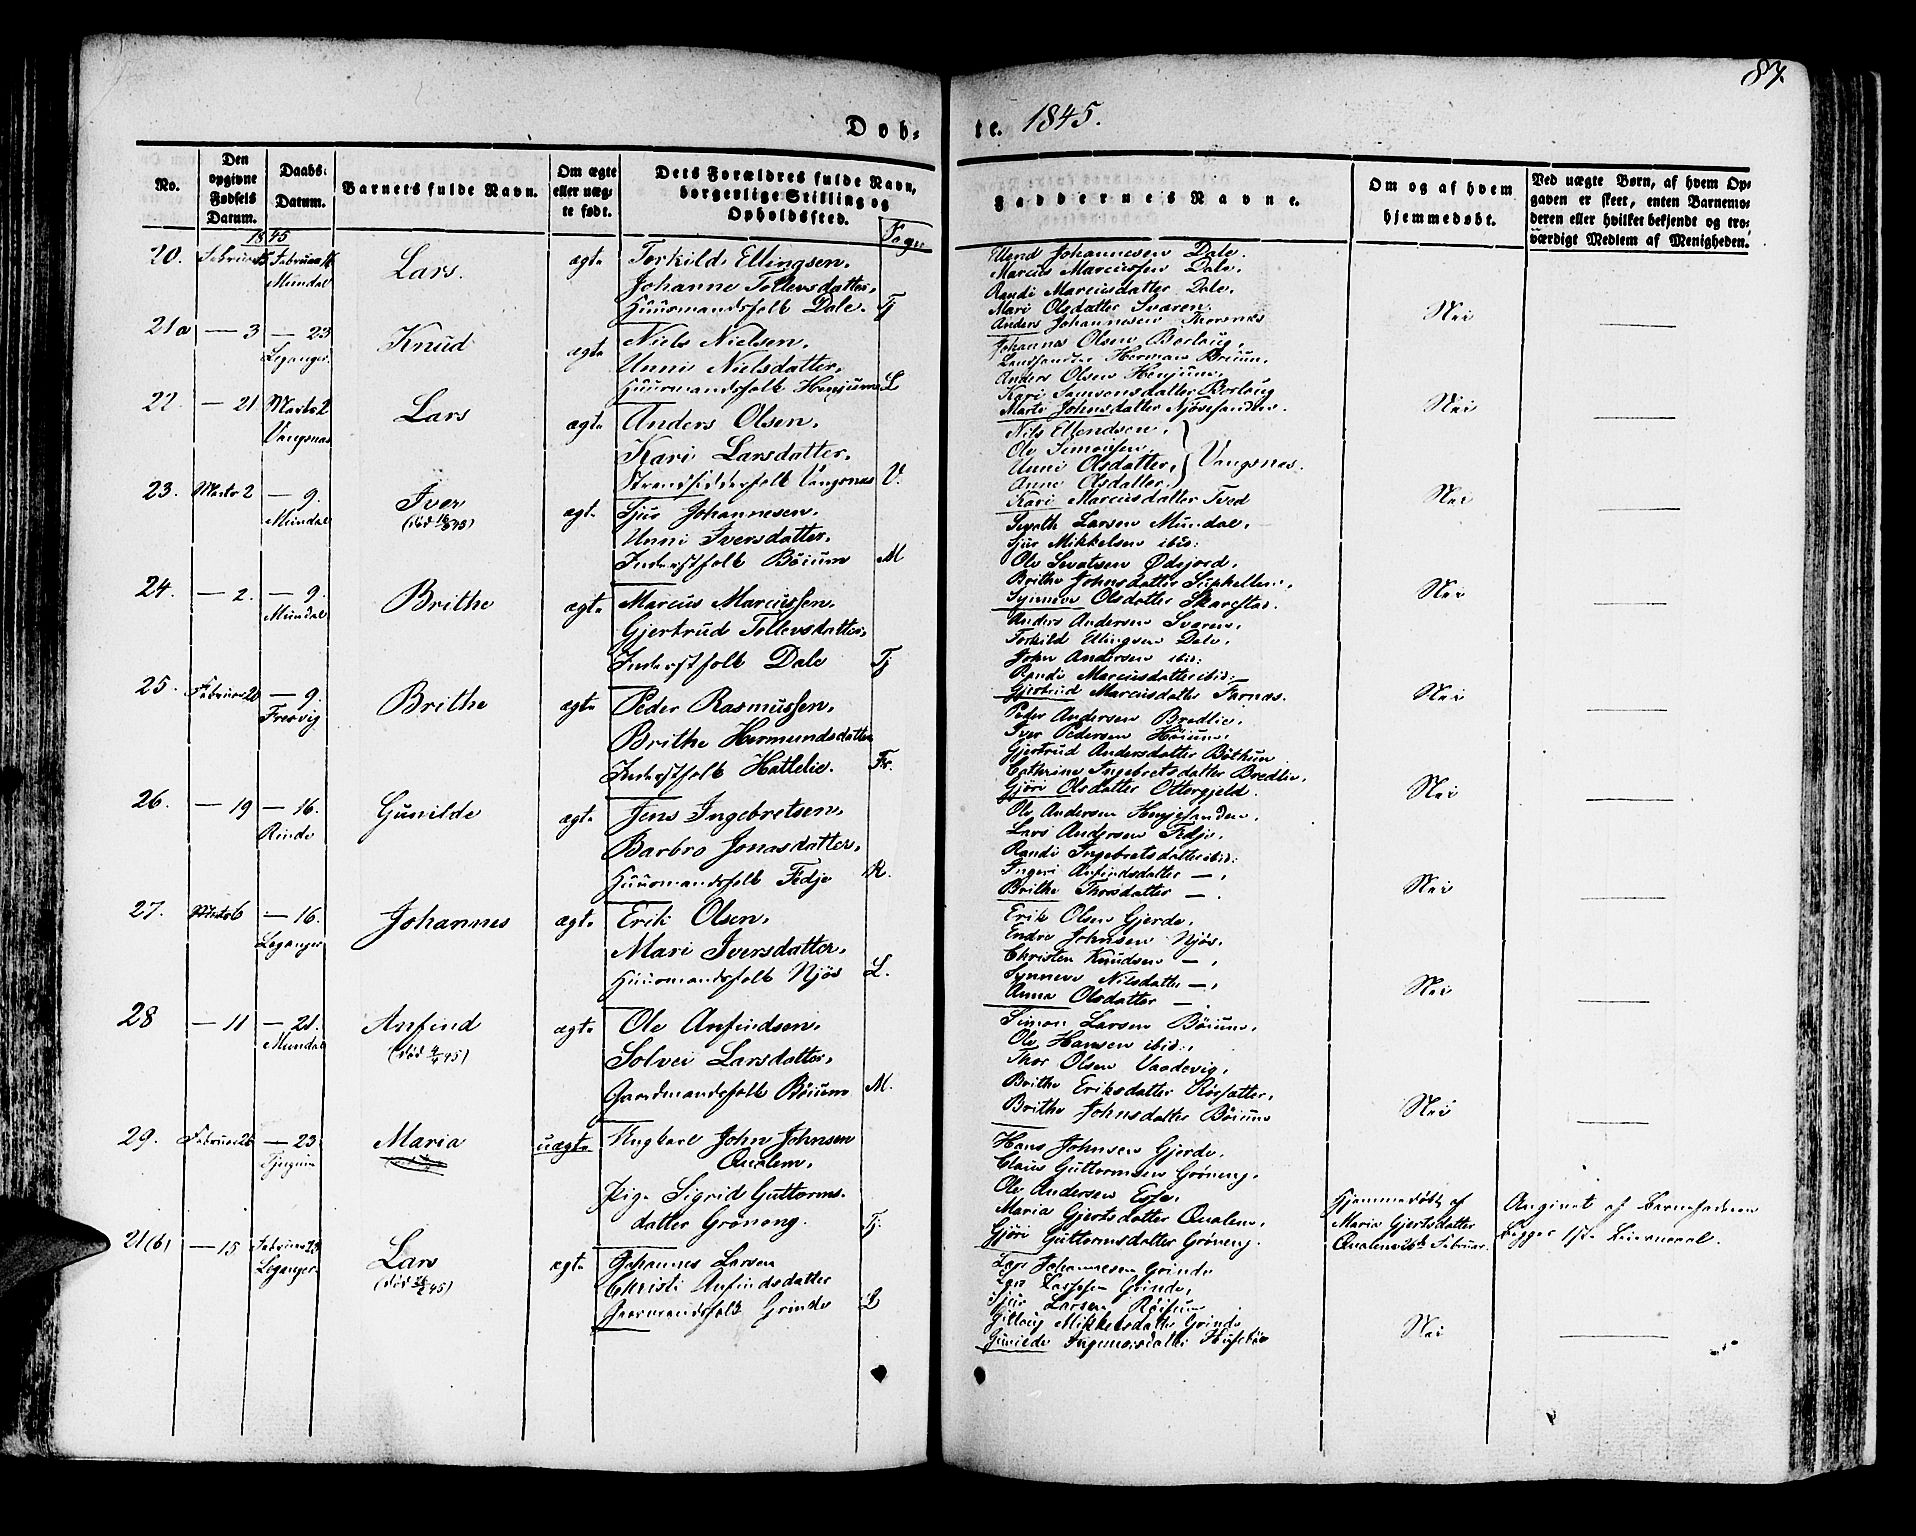 87.
Døb-
te. 1845.
No.
Den opgivne Fødsels Datum.
Daabs-Datum.
Barnets fulde Navn.
Om ægte eller uægte født.
Dets Forældres fulde Navn, borgerlige Stilling og Opholdsted.
Faddernes Navne.
Om og af hvem hjemmedøbt.
Ved uægte Børn, af hvem Opgaven er skeet, enten Barnemoderen eller hvilket bekjendt og troværdigt Medlem af Menigheden.
1845
20. Februar Februar Mundal Lars. ægte Torkild Ellingsen,
Johanne Tollevsdatter,
Huusmandsfolk Dale. Tj
Ellend Johannesen Dale.
Marcus Marcussen Dale,
Randi Marcusdatter Dale,
Mari Olsdatter Svaren.
Anders Johannesen Thorsnes
Nei
21a — 3 — 23 Leganger Knud ægte Niels Nielsen,
Unni Nielsdatter,
Huusmandsfolk Henjum L
Johannes Olsen Borlaug,
Herman Brium,
Anders Olsen Henjum,
Kari Samsonsdatter Borlaug
Marte Johnsdatter Njøsesanden.
Nei
22. — 21 Marts 2 Vangsnes Lars ægte Anders Olsen,
Kari Larsdatter,
Strandsidderfolk Vangsnes V.
Nils Ellendsen,
Ole Simonsen,
Unni Olsdatter, Vangsnes.
Anne Olsdatter,
Kari Marcusdatter Tved
Nei
23. Marts 2 — 9. Mundal Iver ægte Sjur Johannesen,
Unni Iversdatter,
Inderstfolk Böium M
Larsen Mundal,
Sjur Mikkelsen ibid:
Ole Sevatsen Ødejord,
Brithe Johnsdatter Suphellen,
Synneve Olsdatter Skarestad.
Nei
24. — 2. — 9. Mundal Brithe ægte Marcus Marcussen,
Gjertrud Tollevsdatter,
Inderstfolk Dale Tj
Anders Andersen Svaren,
Torkild Ellingsen Dale,
John Andersen ibid:
Randi Marcusdatter ibid:
Gjertrud Marcusdatter Farnes.
Nei
25. Februar 20 — 9. Fresvig Brithe ægte Peder Rasmussen,
Brithe Hermundsdatter
Inderstfolk Hattelie. Fr.
Peder Andersen Bredlie,
Iver Pedersen Höium,
Gjertrud Andersdatter Böthun
Cathrine Ingebretsdatter Bredlie,
Gjöri Olsdatter Ottergjeld.
Nei
26. — 19 — 16. Rinde Gunilde ægte Jens Ingebretsen,
Barbro Jonasdatter,
Huusmandsfolk Fedje R.
Ole Andersen
Lars Andersen Fedje,
Randi Ingebretsdatter ibid:
Ingeri Anfindsdatter —,
Brithe Thorsdatter —.
Nei
27. Marts 6 — 16. Leganger Johannes ægte Erik Olsen,
Mari Iversdatter,
Huusmandsfolk Njös L.
Erik Olsen Gjerde,
Endre Johnsen Njös,
Christen Knudsen —,
Synneve Nilsdatter —,
Anna Olsdatter —.
Nei
28 — 11 — 21. Mundal Anfind ægte Ole Anfindsen,
Solvei Larsdatter,
Gaardmandsfolk Böium M.
Simon Larsen Böium,
Ole Hansen ibid:,
Thor Olsen Vaadevig,
Brithe Eriksdatter
Brithe Johnsdatter Böium
Nei
29. Februar 26 — 23. Tjugum Maria uægte Ungkarl John Johnsen
Qualem,
Pige Sigrid Guttorms-
datter Gröneng. Tj.
Hans Johnsen Gjerde,
Claus Guttormsen Gröneng,
Ole Andersen Esse,
Maria Gjertsdatter Qualem,
Gjöri Guttormsdatter Gröneng.
Hjemmedöbt af
Maria Gjertsdatter
Qualem Februar.
Angivet af Barnefaderen
Begges 1ste Leiermaal.
21(b) — 15 Februar 23 Leganger Lars ægte Johannes Larsen
Christi Anfindsdatter
Gaardmandsfolk Grinde L
Lars Johannesen Grinde
Lars Grinde,
Sjur Larsen
Mikkelsdatter Grinde
Gunilde Ingemoisdatter Husebö
Nei